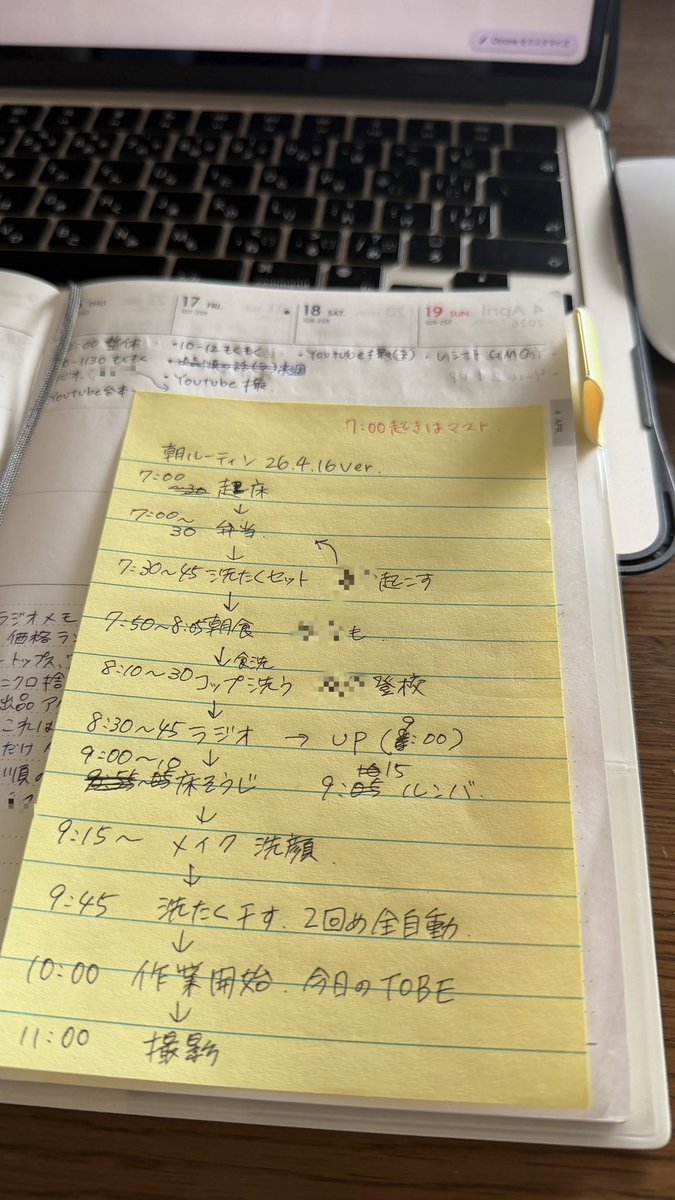 Chrome をカスタマイズ
THU
17 FRI.
107-259
18 SAT.
108-258
19 SUN.
109-257
4 April
2026
:00 整体
-1130 もくもく
Youtube台本
・10-12 もくもく
・Youtube 撮
・Youtube 撮
4 APR.
7:00起きはマスト.
朝ルーティン 26.4.16ver.
7:00
~30 起床
↓
7:00~
30 弁当.
↓
7:30~45 洗たくセット 起こす
↓
7:50~8:05朝食 も
↓食洗
8:10~30コップ洗う 登校
↓
8:30~45 ラジオ → UP (9:00)
9:00~10 ↓
床そうじ 9:15 ルンバ.
↓
9:15~ メイク 洗顔.
↓
9:45 洗たく干す. 2回め全自動.
↓
10:00 作業開始. 今日のTOBE
↓
11:00 撮影
ラジオメモ
価格ラン
トップス、
ニクロ捨
出品ア
これは
だけ
順の